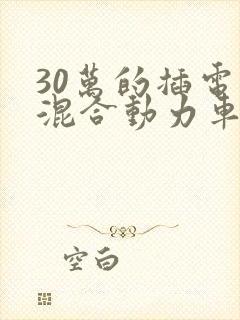 30萬的插電
混合動力車
空白